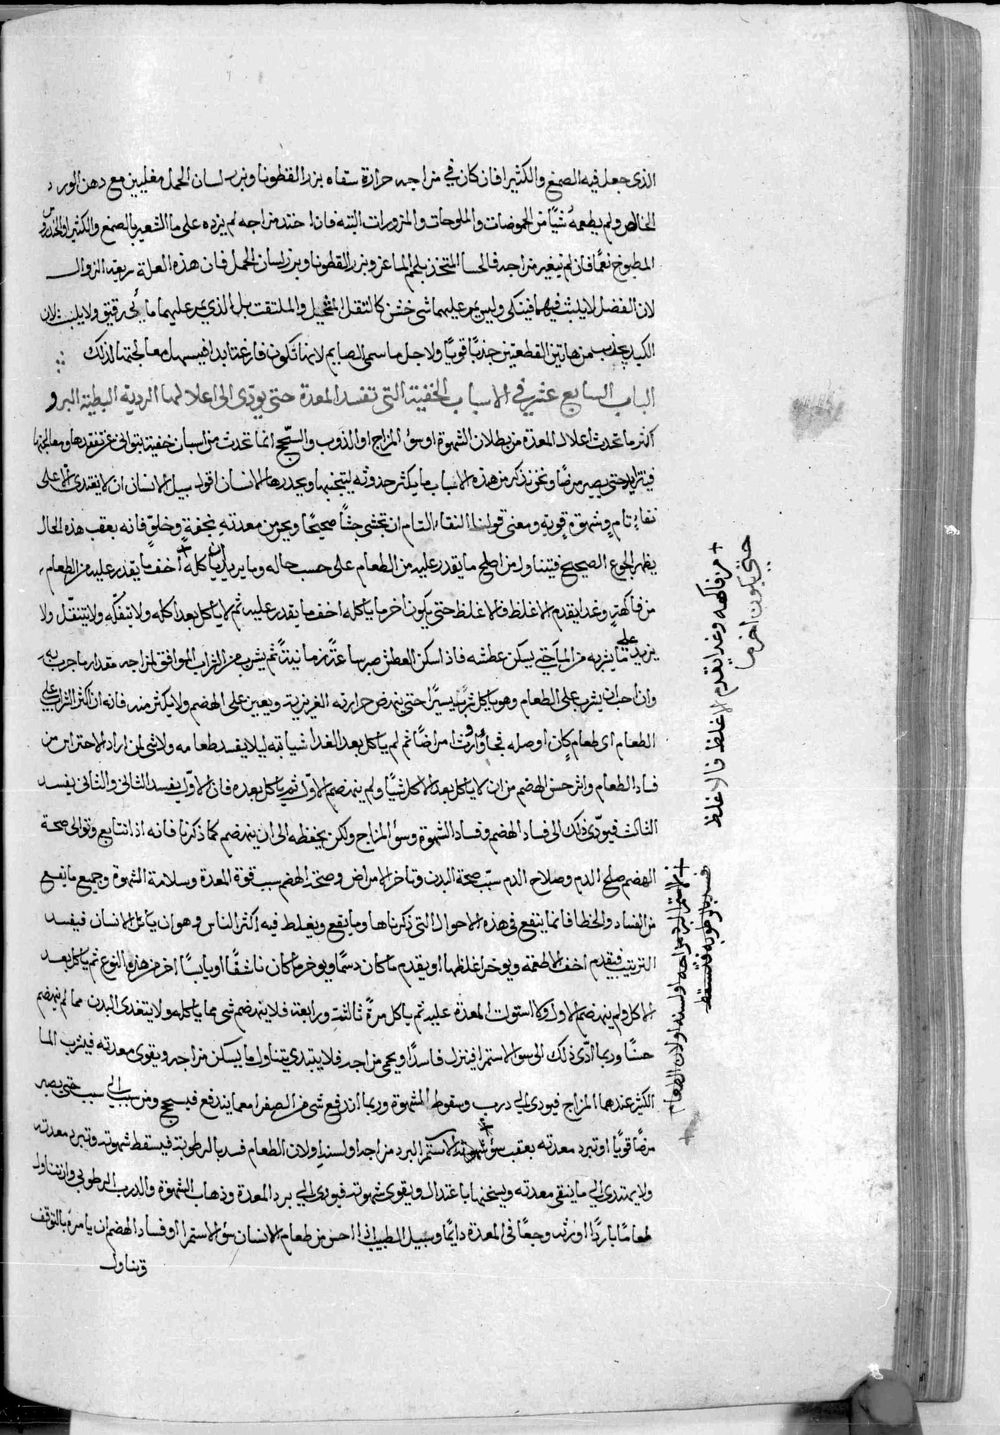 الذى جعل فيه الصمغ والكثيرا فان كان في مزاجه حرارة سقاه بزر القطونا وبزر لسان الحمل مغليين مع دهن الورد
الخالص ولم يطعمه شيًا من الحموضات والملوحات والمزورات البته فاذا احتد مزاجه لم يزده على ما الشعير بالصمغ والكثيرا
المطبوخ نعمًا فان لم يتغير مزاجه فالحسا المتخذ بلحم الماعز وبزر القطونا وبزر لسان الحمل فان هذه العلة سريعة الزوال
لان الفضل لا يلبث فيهما فينكى وليس يمر عليهما شى خشن كالثفل المنحيل والملتفت بل الذي يمر عليهما مايى رقيق ولا يلبث لان
الكبد يجذب من هاتين القطعتين جذبًا قويًا ولاجل ما سمى الصايم لانها تكون فارغة ابدا فيسهل معالجتها لذلك
الباب السابع عشر في الاسباب الخفية التى تفسد المعدة حتى يودى الى اعلالها الردية البطية البرو
اكثر ما تحدث اعلال المعدة من بطلان الشهوة او سؤ المزاج او الذوب والسحج انما تحدث من اسباب خفية يتوانى عن تفقدها ومعالجتها
فيتزايد حتى يصير مرضًا ونحن نذكر من هذه الاسباب ما يكثر حدوثه ليتجنبها ويحذرها الانسان اقول سبيل الانسان ان لا يغتدى الا على
نقاء تام وشهوة قوية ومعنى قولنا النقاء التام ان تجشى جشًا صحيحًا ويحس من معدته بخفة وخلو فانه بعقب هذه الحال
يظهر الجوع الصحيح فيتناول من اصلح ما يقدر عليه من الطعام على حسب حاله وما يريد ان ياكله اخف ما يقدر عليه من الطعام
من فاكهة وغدا يقدم الاغلظ فالاغلظ حتى يكون اخر ما ياكله اخف ما يقدر عليه ثم لا ياكل بعد اكله ولا يتفكه ولا يتنقل ولا
يزيد على ما يشربه من الما حتى يسكن عطشه فاذا سكن العطش صبر ساعة زمانية ثم يشرب من الشراب الموافق لمزاجه مقدار ما جرت به
وان احب ان يشرب على الطعام وهو ياكل شرب يسيرًا حتى ينهض حرارته الغريزية ويعين على الهضم ولا يكثر منه فانه ان اكثر الشراب على
الطعام اى طعام كان اوصله فجًا واورث امراضًا ثم لم ياكل بعد الغدا شيا بته ليلا يفسد طعامه ولا شى لمن اراد الاحتراس من
فساد الطعام واثر حسن الهضم من ان لا ياكل بعد الاكل شيًا ولم ينهضم الاول ثم ياكل بعده فان الاول يفسد الثانى والثانى يفسد
الثالث فيودى ذلك الى فساد الهضم وفساد الشهوة وسؤ المزاج ولكن يحفظه الى ان ينهضم كما ذكرنا فانه اذا تتابع وتوالى صحة
الهضم صلح الدم وصلاح الدم سبب صحة البدن وتاخر الامراض وصحة الهضم سبب قوة المعدة وسلامة الشهوة وجميع ما يقع
من الفساد والخطا فانما يتفع في هذه الاحوال التى ذكرناها ومما يقع ويغلط فيه اكثر الناس وهو ان ياكل الانسان فيفسد
الترتيب فيقدم اخف الاطعمة ويوخر اغلظها او يقدم ما كان دسمًا ويوخر ما كان ناشفًا او يابسًا اخر من هذا النوع ثم ياكل بعد
الاكل ولم ينهضم الاول ولا استوت المعدة عليه ثم ياكل مرة ثالثة ورابعة فلا ينهضم شى مما ياكله ولا يتغدى البدن مما لم ينهضم
حسنًا وربما ادى ذلك الى سؤ الاستمرا فينزل فاسدًا ويحمى مزاجه فلا يبتدى بتناول ما يسكن مزاجه ويقوى معدته فيشرب الما
الكثير عندها المزاج فيودى الى درب وسقوط الشهوة وربما اندفع شى من الصفرا معما يندفع فيسحج ومن سبب الى سبب حتى يصير
مرضًا قويًا او تبرد معدته بعقب سؤ الاستمرا لبرد مزاجه او لسنه او لان الطعام فسد بالرطوبة فيسقط شهوته وتبرد معدته
ولا يهتدى الى ما ينقى معدته ويسخنها باعتدال ويقوى شهوته فيودى الى برد المعدة وذهاب الشهوة والدرب الرطوبى وان تناول
طعامًا باردًا اورثه وجعًا فى المعدة دايمًا وسبيل الطبيب اذا احس من طعام الانسان سؤ الاستمرا او فساد الهضم ان يامره بالتوقف
وتناول
من فاكهه وغدا يقدم الاغلظ فالاغلظ
حتى يكون اخر ما
الاستمرا لبرد مزاجه او لسنه او لان الطعام
فسد بالرطوبه فتسقط